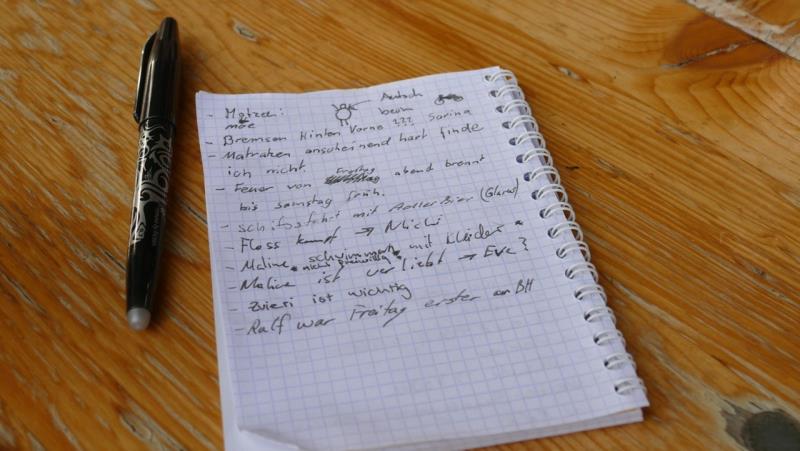 - Motzen: Autsch
moe beim
- Bremsen Hinten Vorne ??? Sarina
- Matratzen anscheinend hart finde
ich nicht.
- Feuer von Freitag abend brennt
bis samstag früh.
- schifsfahrt mit Adler Bier (Glarus)
- Floss kampf → Michi
- Maline schwimmt mit kleider
* nicht freiwillig *
- Maline ist verliebt → Eve?
- Zvieri ist wichtig
- Ralf war Freitag erster am BH